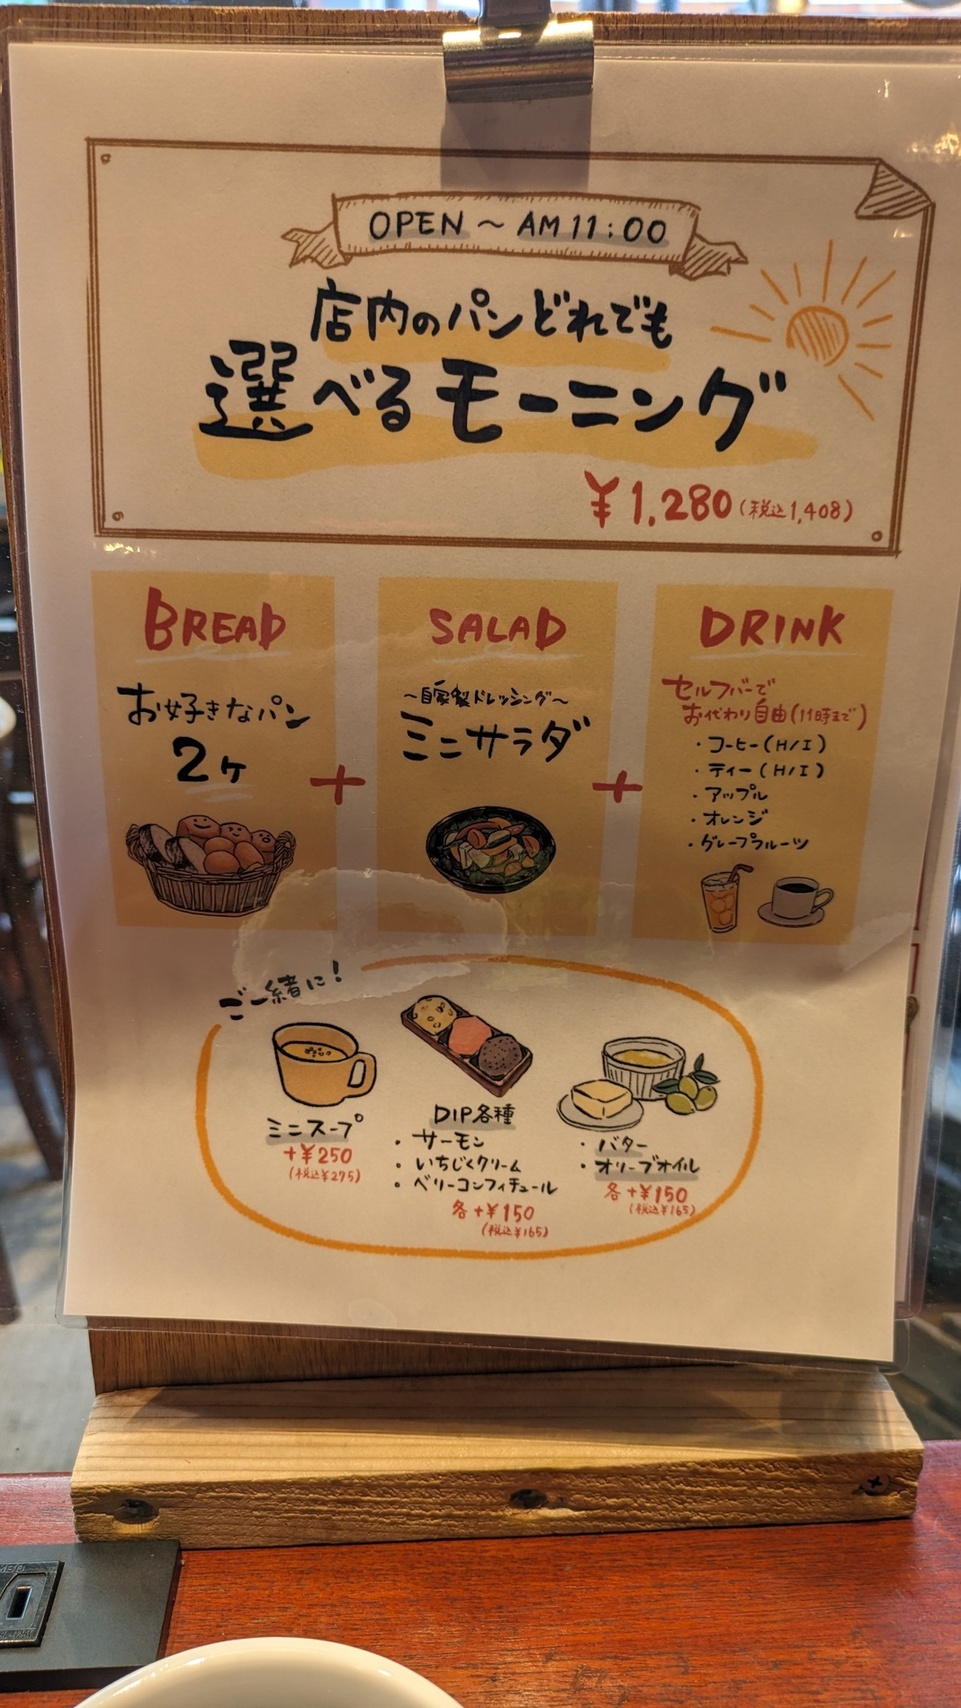 OPEN ～ AM 11:00
店内のパンどれでも
選べるモーニング
¥1,280(税込1,408)
BREAD
お好きなパン
2ヶ
+
SALAD
～自家製ドレッシング～
ミニサラダ
+
DRINK
セルフバーで
お代わり自由(11時まで)
・コーヒー(H/I)
・ティー(H/I)
・アップル
・オレンジ
・グレープフルーツ
ご一緒に!
ミニスープ
+¥250
(税込¥275)
DIP各種
・サーモン
・いちじくクリーム
・ベリーコンフィチュール
各+¥150
(税込¥165)
・バター
・オリーブオイル
各+¥150
(税込¥165)